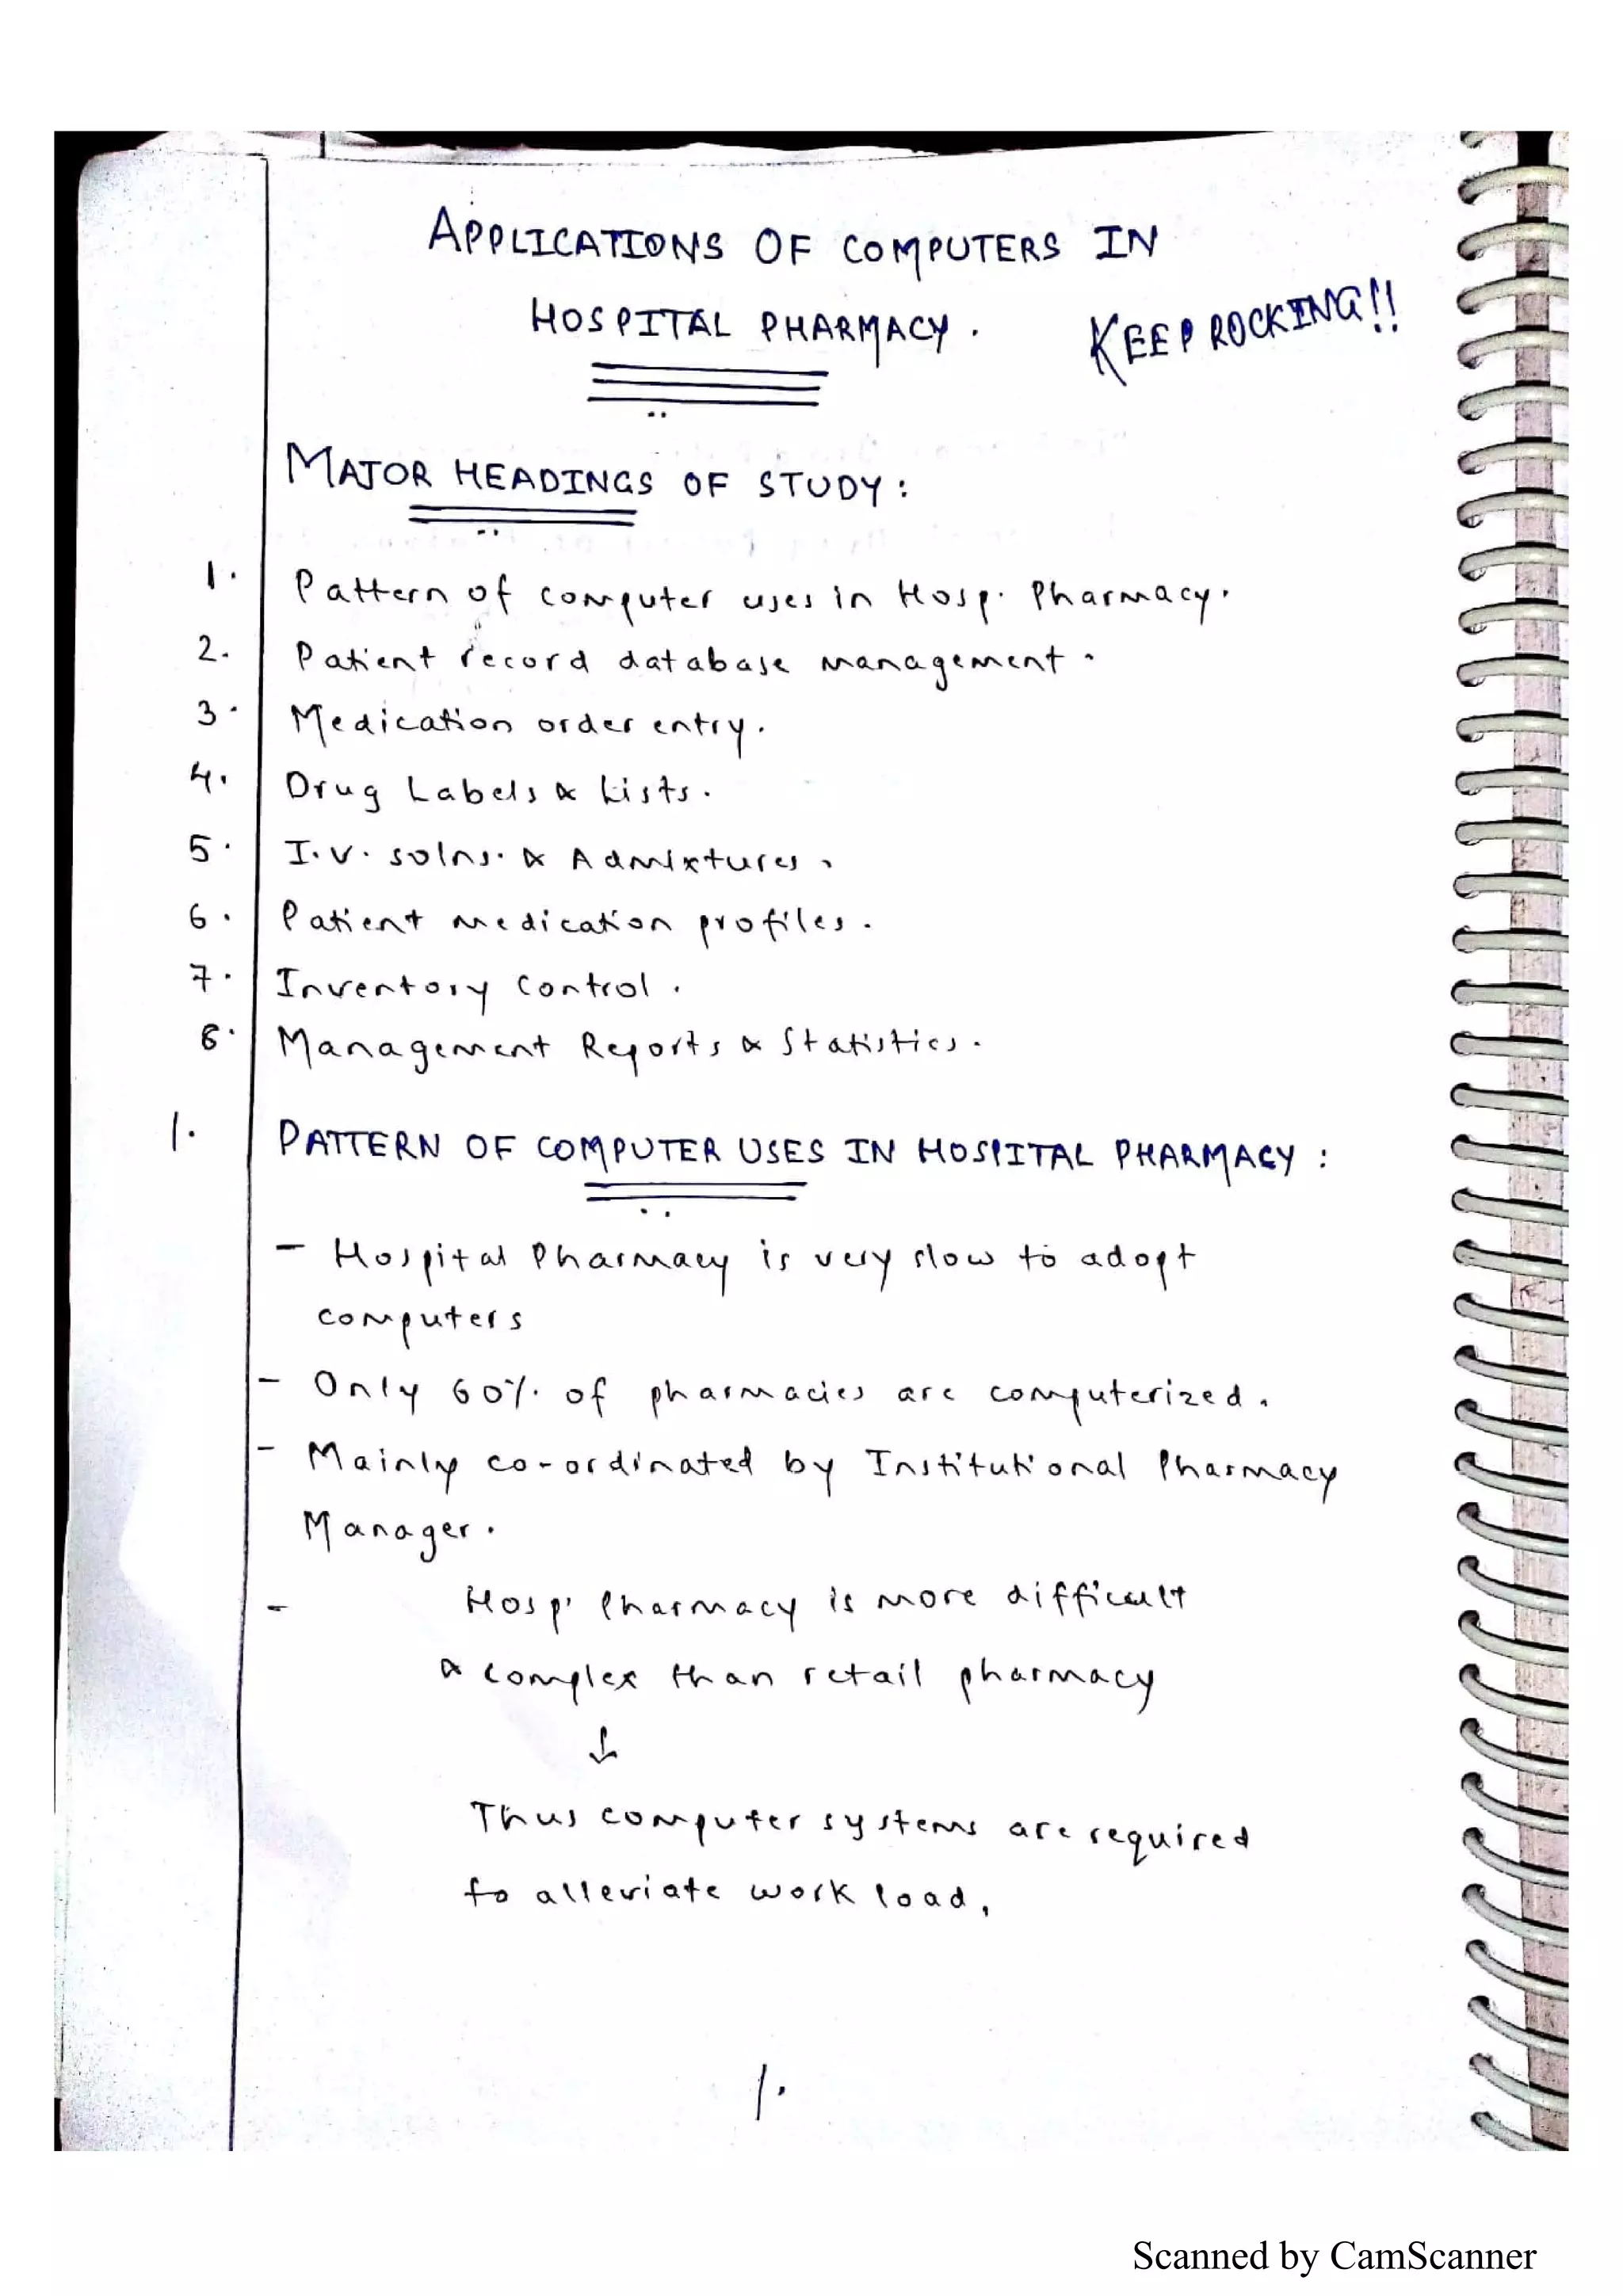 APPLICATIONS OF COMPUTERS IN
HOSPITAL PHARMACY.
KEEP ROCKING!!
MAJOR HEADINGS OF STUDY:
1. Pattern of computer uses in Hosp. Pharmacy.
2. Patient record database management.
3. Medication order entry.
4. Drug Labels & Lists.
5. I.V. solns. & Admixtures.
6. Patient medication profiles.
7. Inventory Control.
8. Management Reports & Statistics.
1. PATTERN OF COMPUTER USES IN HOSPITAL PHARMACY:
- Hospital Pharmacy is very slow to adopt
computers
- Only 60% of pharmacies are computerized.
- Mainly co-ordinated by Institutional Pharmacy
Manager.
- Hosp. Pharmacy is more difficult
& complex than retail pharmacy
↓
Thus computer systems are required
to alleviate work load,
1.
Scanned by CamScanner